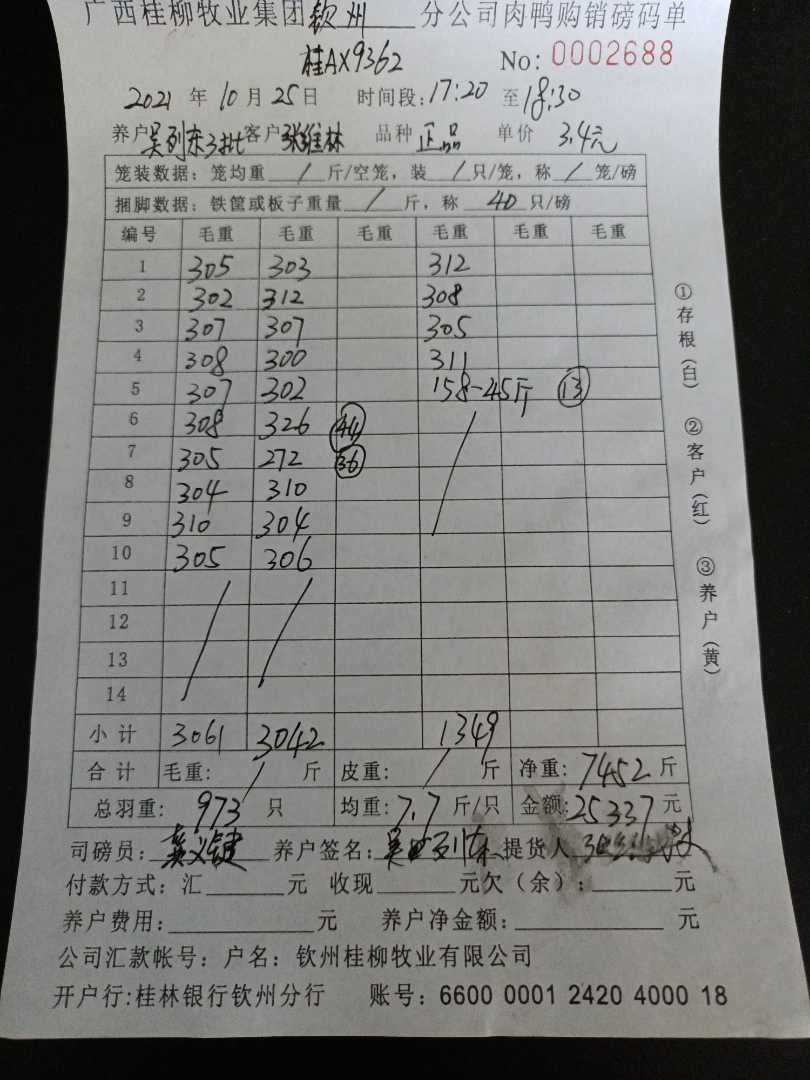 广西桂柳牧业集团 钦州 分公司肉鸭购销磅码单
桂AX9362 No: 0002688
2021 年 10 月 25 日 时间段: 17:20 至 18:30
养户 吴列东3批 客户 张维林 品种 正品 单价 3.4元
笼装数据: 笼均重 / 斤/空笼, 装 / 只/笼, 称 / 笼/磅
捆脚数据: 铁筐或板子重量 / 斤, 称 40 只/磅
编号 毛重 毛重 毛重 毛重 毛重 毛重
1 305 303 312
2 302 312 308
3 307 307 305
4 308 300 311
5 307 302 158-45斤 13
6 308 326 44
7 305 272 36
8 304 310
9 310 304
10 305 306
11
12
13
14
小计 3061 3042 1349
合计 毛重: / 斤 皮重: / 斤 净重: 7452 斤
总羽重: 973 只 均重: 7.7 斤/只 金额: 25337 元
司磅员: 养户签名: 提货人
付款方式: 汇 元 收现 元欠(余): 元
养户费用: 元 养户净金额: 元
公司汇款帐号: 户名: 钦州桂柳牧业有限公司
开户行:桂林银行钦州分行 账号: 6600 0001 2420 4000 18
①存根(白) ②客户(红) ③养户(黄)